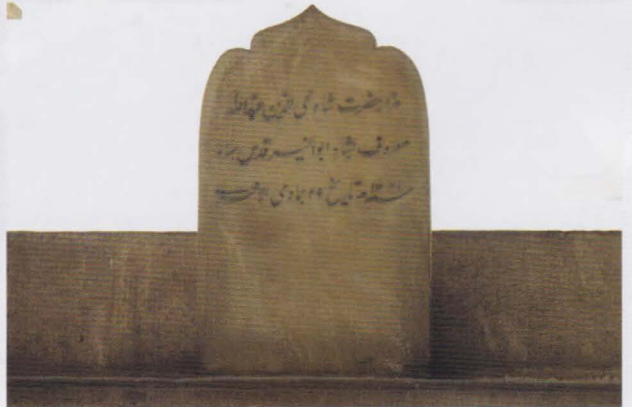 مزار حضرت شاہ محی الدین عبداللہ
معروف بشاہ ابوالخیر قدس سرہ
تاریخ ۲۹ جمادی الآخر